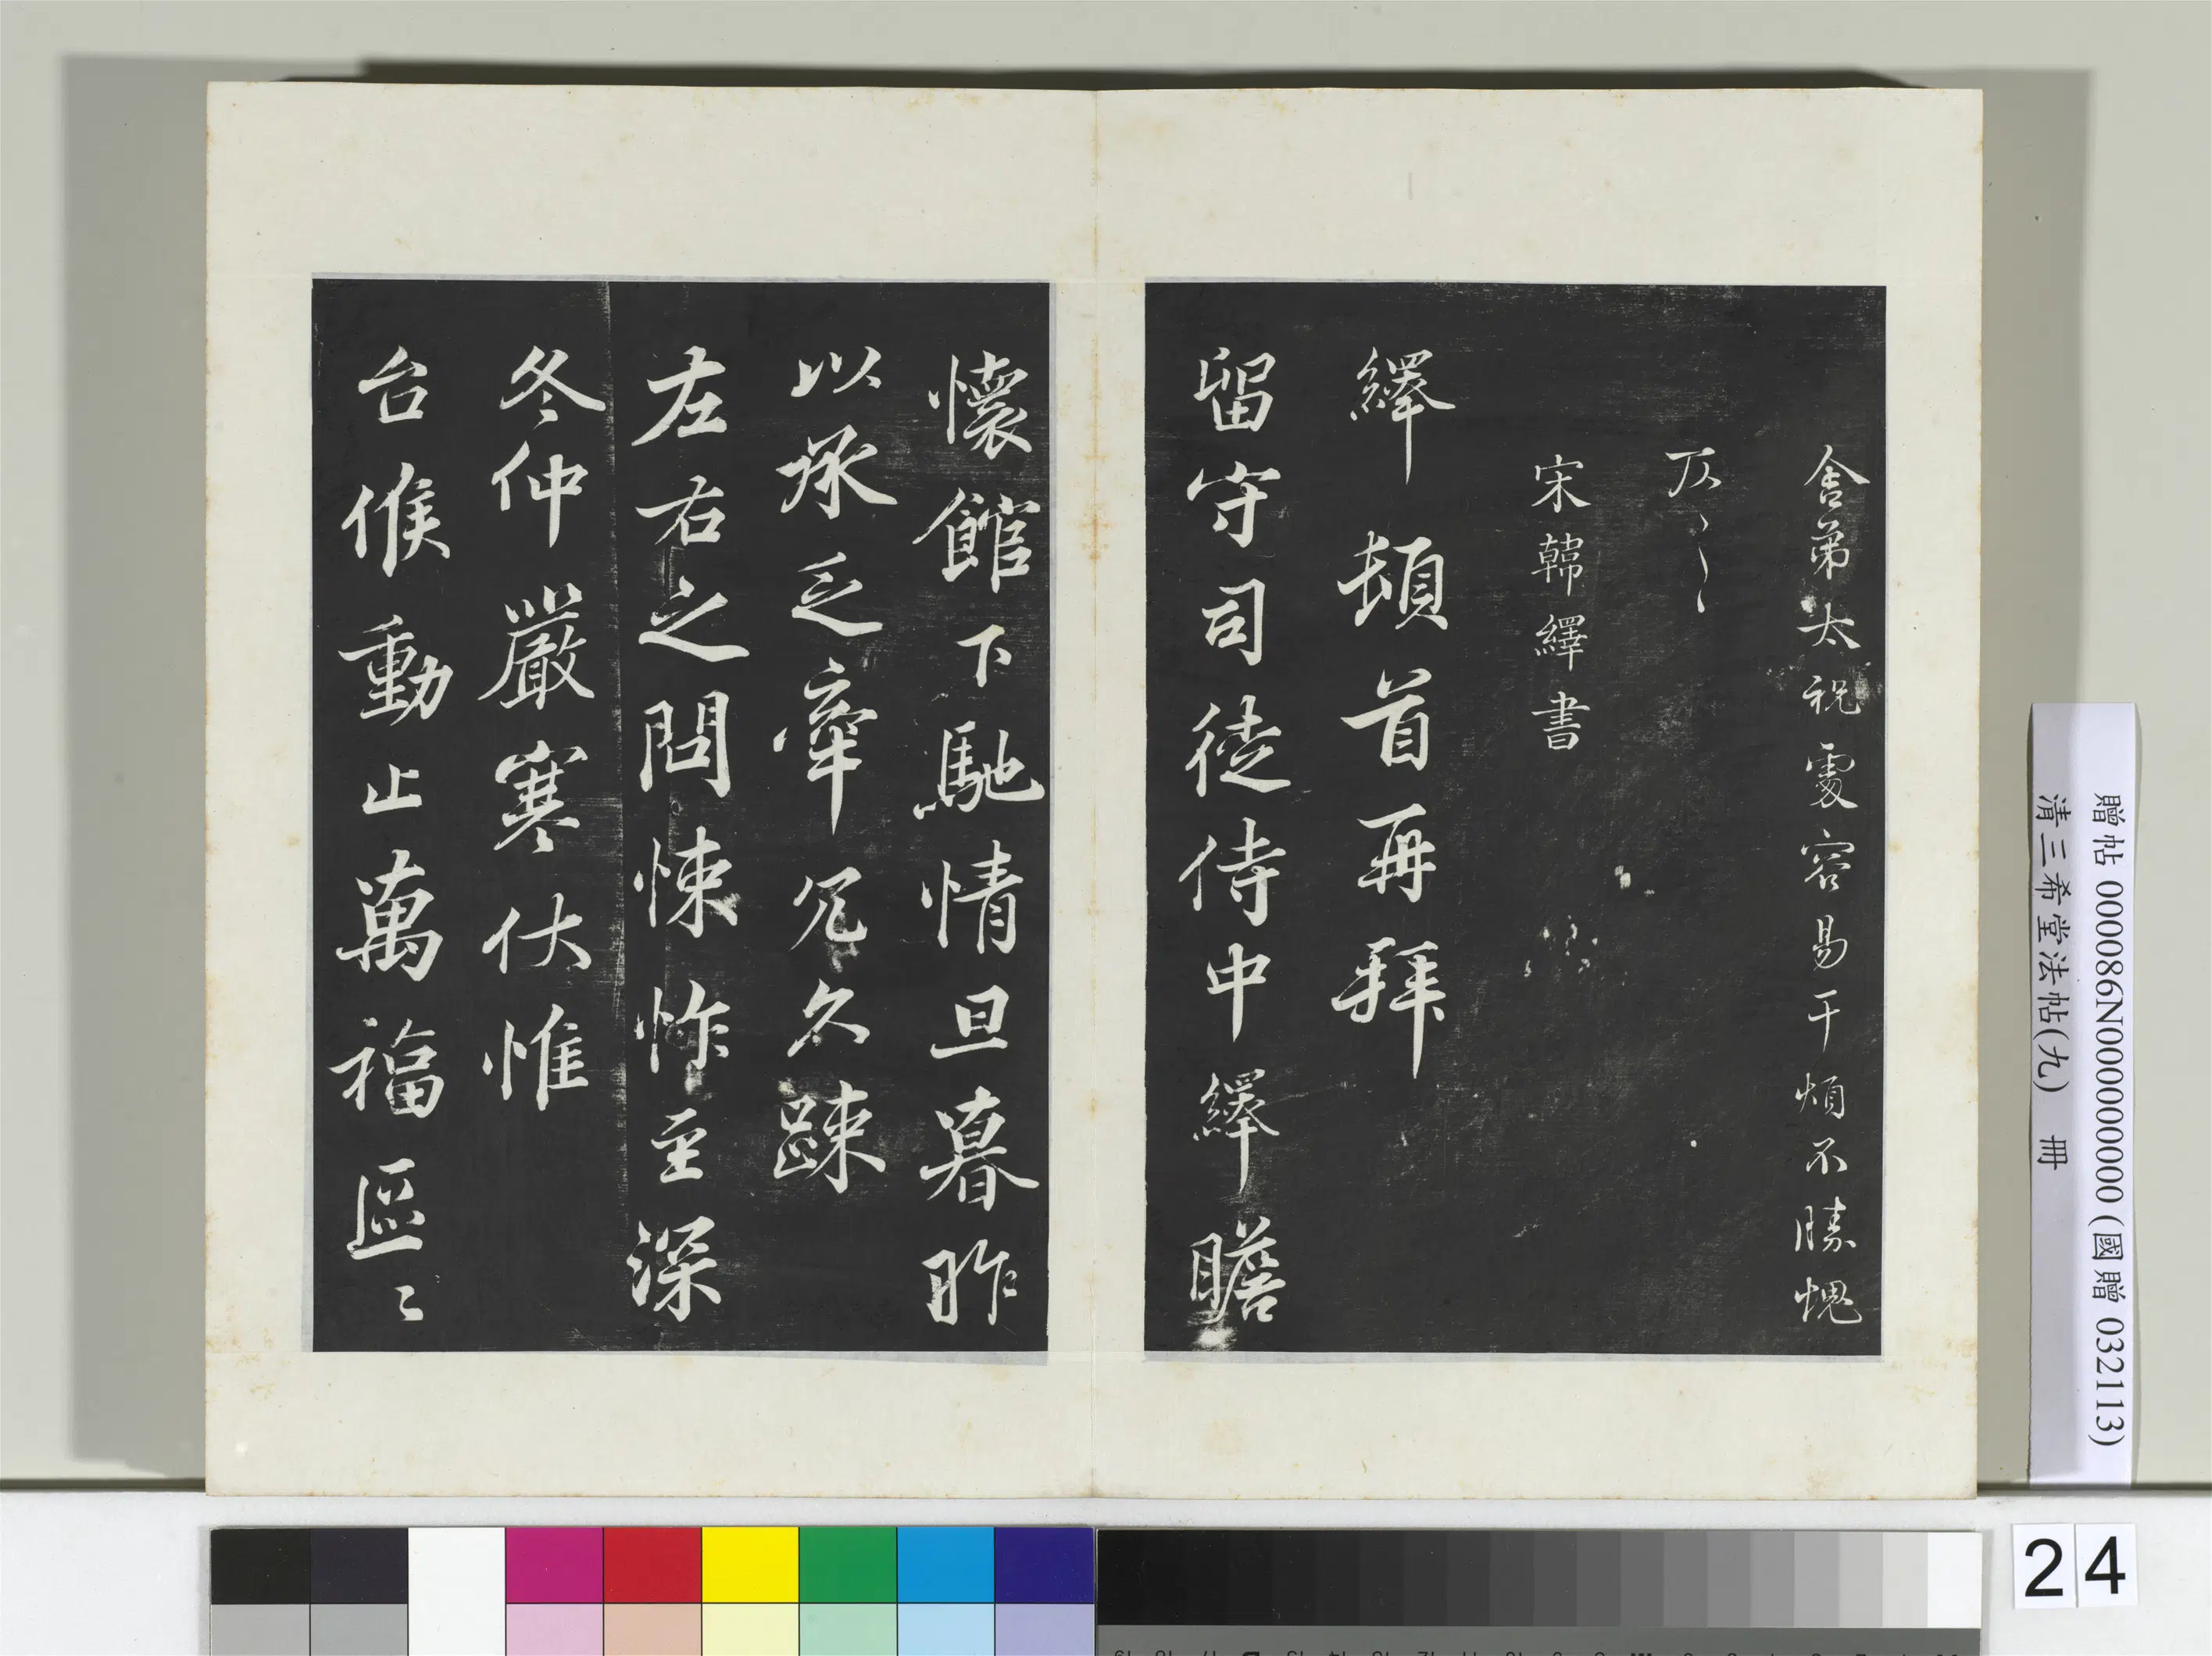 舍弟太祝處容易干煩不勝愧
仄〻〻
宋韓繹書
繹頓首再拜
留守司徒侍中繹瞻
懷館下馳情旦暮昨
以承乏牽冗久疎
左右之問悚怍至深
冬仲嚴寒伏惟
台候動止萬福區〻
贈帖 000086N000000000 (國贈 032113)
清三希堂法帖(九) 冊
24